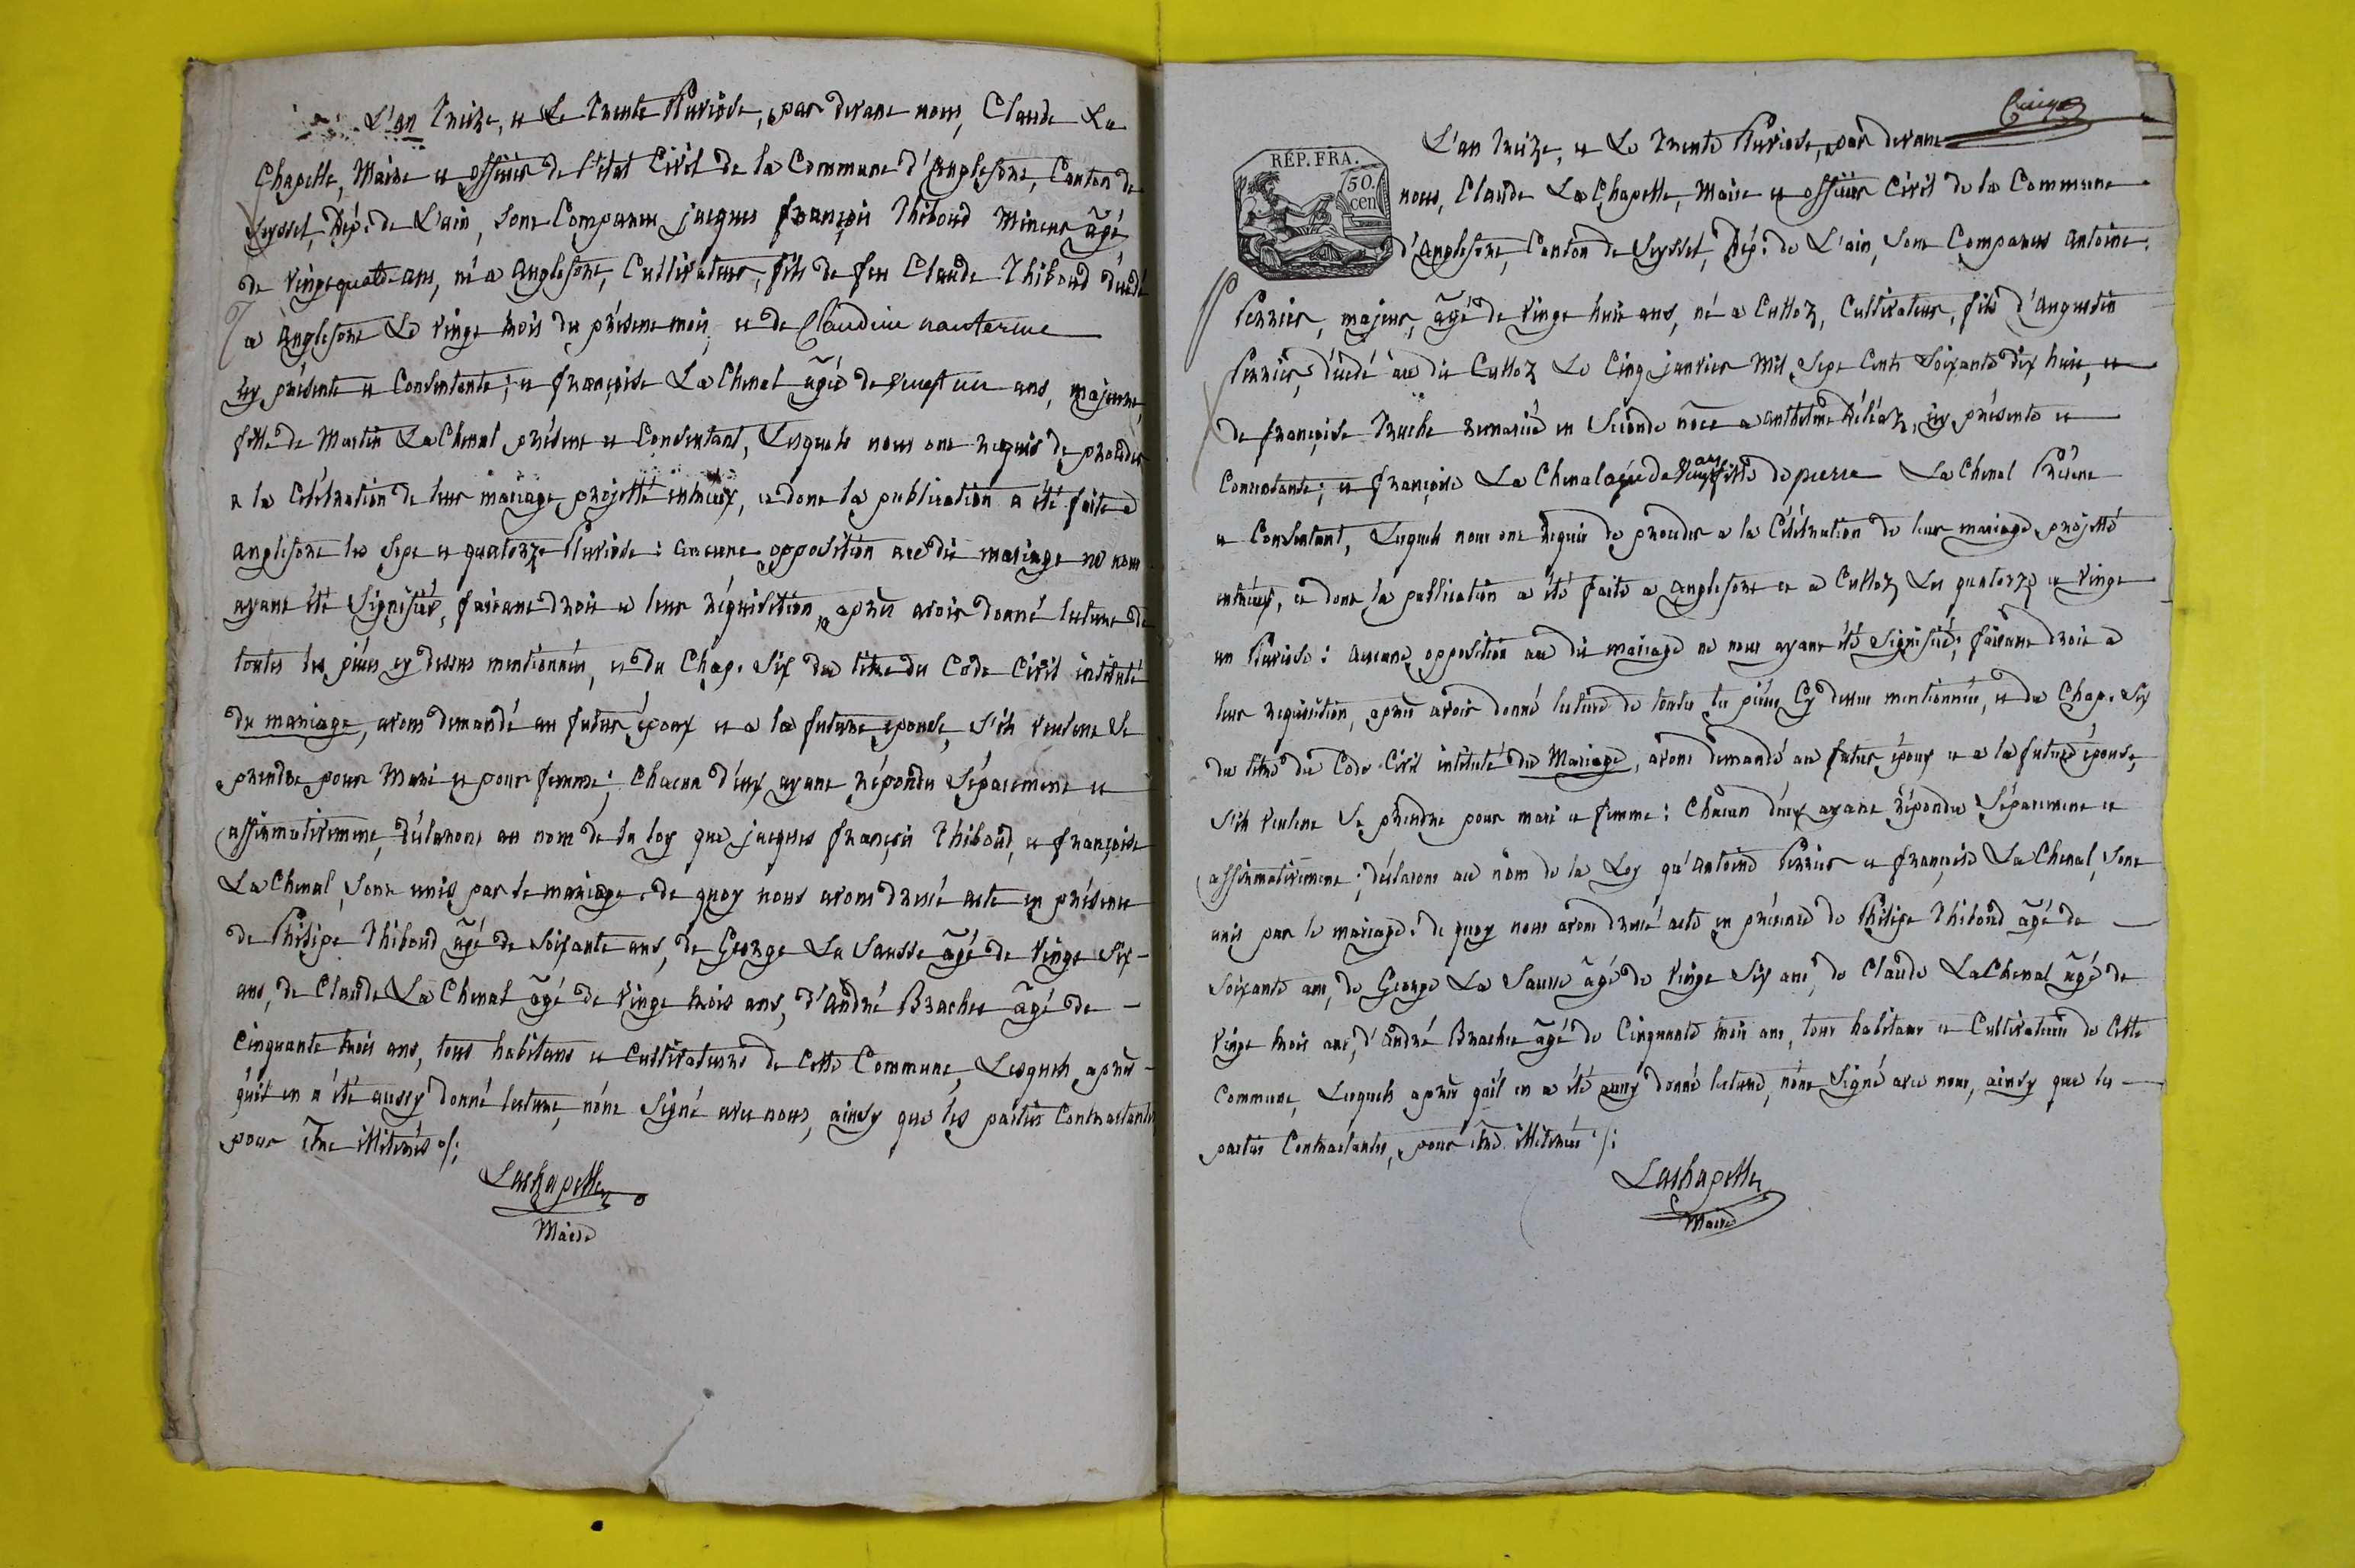 L'an treize, et Le trente Pluviôse, par devant nous, Claude La
Chapelle, Maire et officier de l'état Civil de la Commune d'Anglefort, Canton de
Seyssel, Dép.t de L'ain, Sont Comparus jacques françois Thiboud Mineur âgé
de vingt quatre ans, né a Anglefort, Cultivateur, fils de feu Claude Thiboud décédé
a Anglefort Le vingt trois du présent mois, et de Claudine nanterme
icy présente et Consentante; et françoise La Chenal âgée de vingt un ans, majeure,
fille de Martin La Chenal présent et Consentant, Lesquels nous ont requis de procéder
a la Célébration de leur mariage projetté entreux, et dont la publication a été faite a
anglefort les Sept et quatorze Pluviose: aucune opposition au dit mariage ne nous
ayant été Signifiée, faisant droit a leur réquisition, après avoir donné lecture de
toutes les pièces cy dessus mentionnées, et du Chap. Six du titre du Code Civil intitulé
du mariage, avons demandé au futur époux et a la future epouse, S'ils veulent Se
prendre pour Mari et pour femme; Chacun d'eux ayant répondu Séparement et
affirmativement, déclarons au nom de la loy que jacques françois Thiboud, et françoise
La Chenal, Sont unis par le mariage. de quoy nous avons dressé acte en présence
de Philipe Thiboud âgé de Soixante ans, de George La Sausse âgé de vingt Six
ans, de Claude La Chenal âgé de vingt trois ans, d'André Brachet âgé de
Cinquante trois ans, tous habitans et Cultivateurs de Cette Commune, Lesquels après
qu'il en a été aussy donné lecture, n'ont Signé avec nous, ainsy que les parties Contractantes
pour être illiterés ./.
Lachapelle
Maire
L'an treize, et Le trente Pluviose, par devant
RÉP. FRA.
50. cen
nous, Claude La Chapelle, Maire et officier Civil de la Commune
d'Anglefort, Canton de Seyssel, Dép.t de L'ain, Sont Comparus antoine
Perrier, majeur, âgé de vingt huit ans, né a Culloz, Cultivateur, fils d'Augustin
Perrier, décédé au dit Culloz Le Cinq janvier Mil Sept Cents Soixante dix huit, et
de françoise Truche remariée en Seconde nôce a anthelme, icy présente et
Consentante; et françoise La Chenal agée de vingt ans fille de pierre La Chenal Présent
et Consentant, Lesquels nous ont requis de procéder a la Célébration de leur mariage projetté
entreux, et dont la publication a été faite a anglefort et a Culloz Les quatorze et vingt
un Pluviose: aucune opposition au dit mariage ne nous ayant été Signifiée; faisant droit a
leur requisition, après avoir donné lecture de toutes les pièces Cy dessus mentionnées, et du Chap. Six
du titre du Code Civil intitulé du Mariage, avons demandé au futur époux et a la future épouse,
S'ils veulent Se prendre pour mari et femme: Chacun d'eux ayant répondu Séparement et
affirmativement; déclarons au nom de la Loy qu'antoine Perrier et françoise La Chenal, Sont
unis par le mariage. de quoy nous avons dressé acte en présence de Philipe Thiboud âgé de
Soixante ans, de George La Sausse âgé de vingt Six ans, de Claude La Chenal âgé de
vingt trois ans, d'André Brachet âgé de Cinquante trois ans, tous habitans et Cultivateurs de Cette
Commune, Lesquels après qu'il en a été aussy donné lecture, n'ont Signé avec nous, ainsy que les
parties Contractantes, pour être illiterés ./.
Lachapelle
Maire